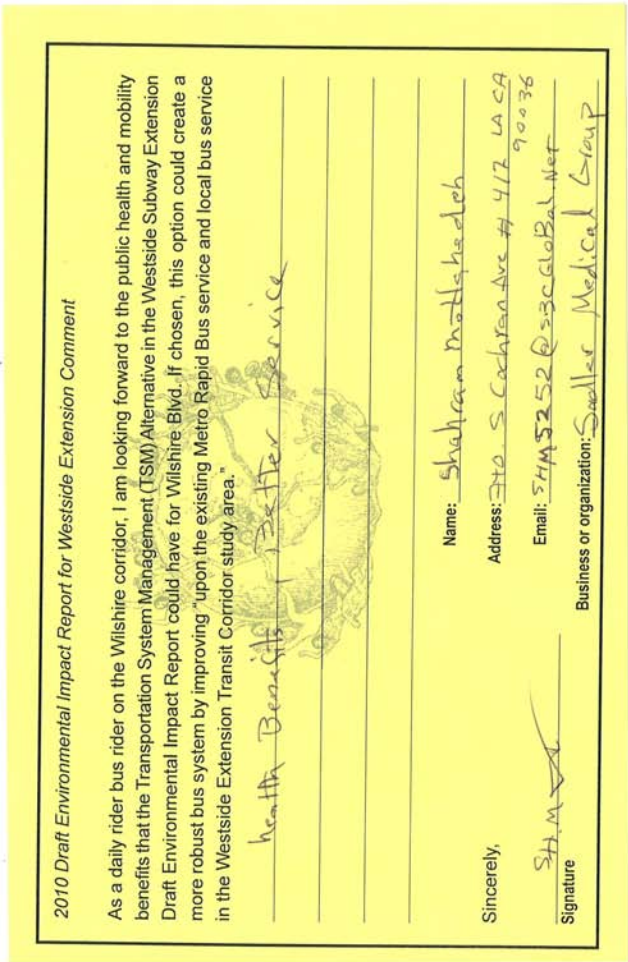 2010 Draft Environmental Impact Report for Westside Extension Comment
As a daily rider bus rider on the Wilshire corridor, I am looking forward to the public health and mobility
benefits that the Transportation System Management (TSM) Alternative in the Westside Subway Extension
Draft Environmental Impact Report could have for Wilshire Blvd. If chosen, this option could create a
more robust bus system by improving "upon the existing Metro Rapid Bus service and local bus service
in the Westside Extension Transit Corridor study area."
health Benefits, Better Service
Name: Shahram Mottghedeh
Address: 740. S Cochran Ave # 412 LA CA
90036
Email: SHM5252@SBCGloBal.Net
Business or organization: Sadler Medical Group
Sincerely,
SH.M
Signature